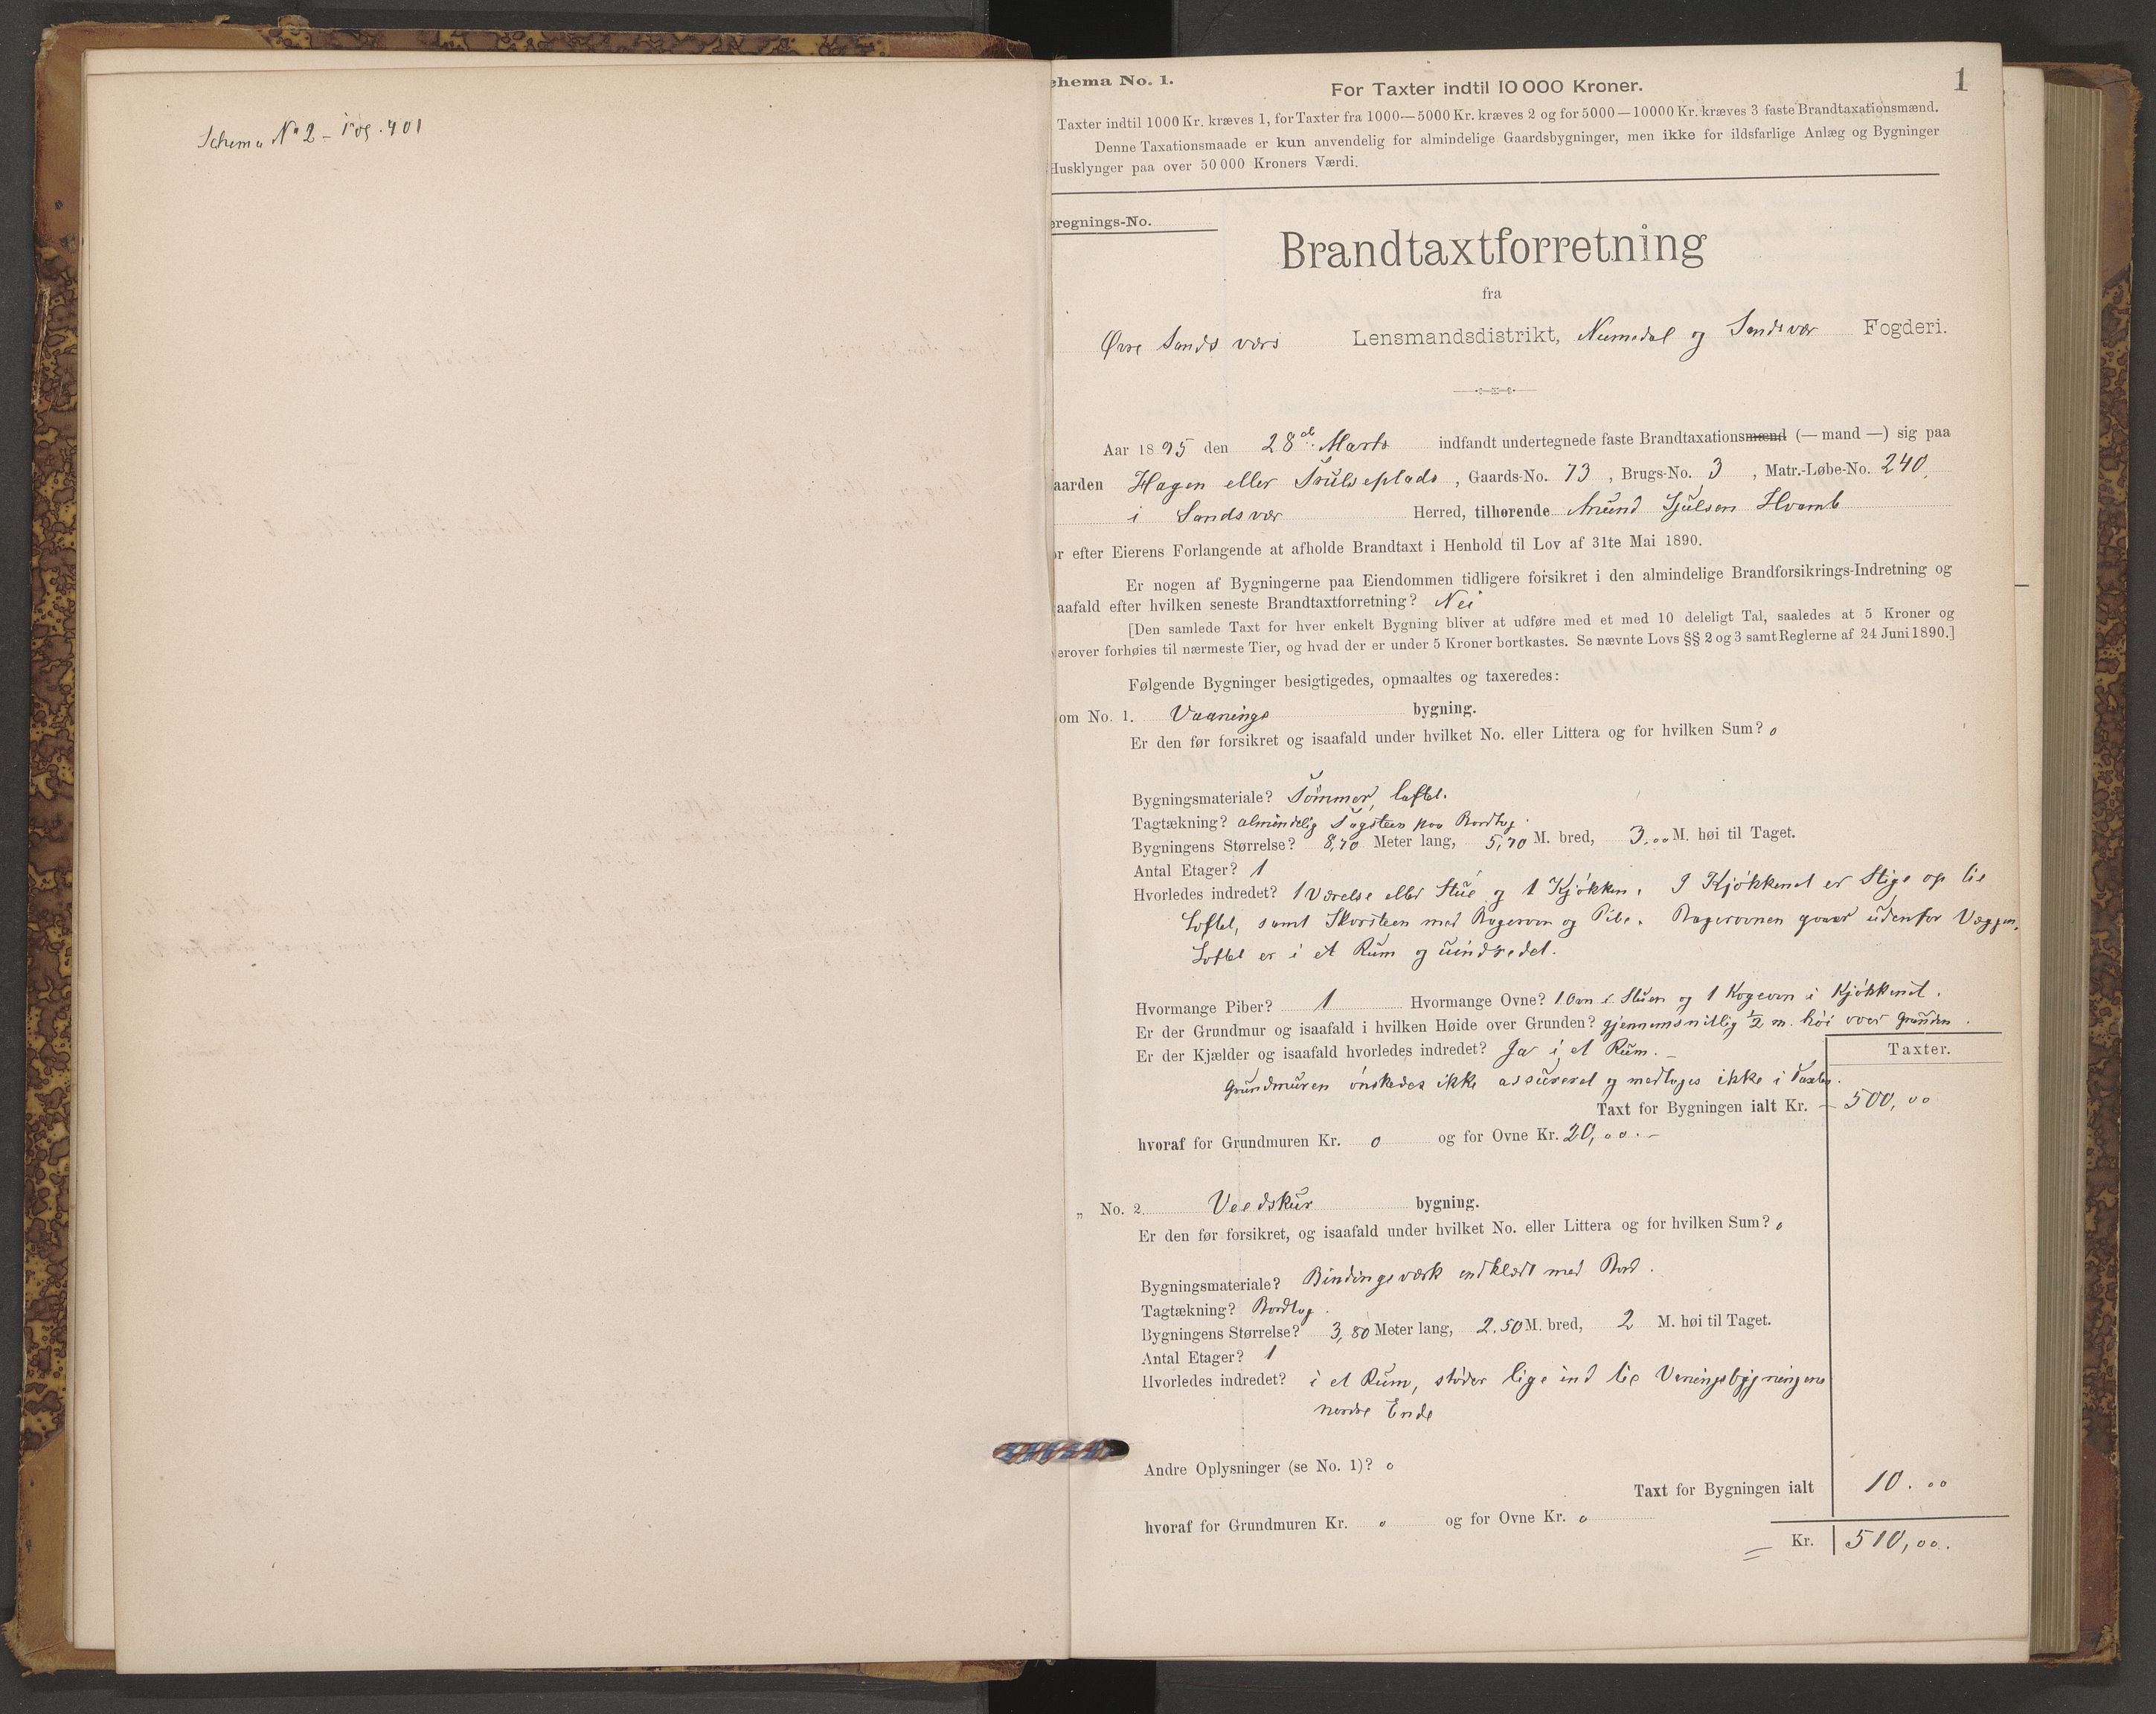 Schema No 2 - Pag. 401
chema No. 1.
For Taxter indtil 10 000 Kroner.
1
Taxter indtil 1000 Kr. kræves 1, for Taxter fra 1000—5000 Kr. kræves 2 og for 5000—10000 Kr. kræves 3 faste Brandtaxationsmænd.
Denne Taxationsmaade er kun anvendelig for almindelige Gaardsbygninger, men ikke for ildsfarlige Anlæg og Bygninger
Husklynger paa over 50 000 Kroners Værdi.
eregnings-No.
Brandtaxtforretning
fra
Øvre Sandsværs Lensmandsdistrikt, Numedal og Sandsvær Fogderi.
Aar 1895 den 28de Marts indfandt undertegnede faste Brandtaxationsmænd (— mand —) sig paa
aarden Hagen eller Trulseplads, Gaards-No. 73, Brugs-No. 3, Matr.-Løbe-No. 240,
i Sandsvær Herred, tilhørende Anund Hvamb
or efter Eierens Forlangende at afholde Brandtaxt i Henhold til Lov af 31te Mai 1890.
Er nogen af Bygningerne paa Eiendommen tidligere forsikret i den almindelige Brandforsikrings-Indretning og
aafald efter hvilken seneste Brandtaxtforretning? Nei
[Den samlede Taxt for hver enkelt Bygning bliver at udføre med et med 10 deleligt Tal, saaledes at 5 Kroner og
erover forhøies til nærmeste Tier, og hvad der er under 5 Kroner bortkastes. Se nævnte Lovs §§ 2 og 3 samt Reglerne af 24 Juni 1890.]
Følgende Bygninger besigtigedes, opmaaltes og taxeredes:
om No. 1. Vaanings bygning.
Er den før forsikret og isaafald under hvilket No. eller Littera og for hvilken Sum? o
Bygningsmateriale? Tømmer, laftet.
Tagtækning? almindelig Tagsteen paa Bordtag.
Bygningens Størrelse? 8,70 Meter lang, 5,70 M. bred, 3.00 M. høi til Taget.
Antal Etager? 1
Hvorledes indredet? 1 Værelse eller Stue og 1 Kjøkken. I Kjøkkenet er Stige op til
Loftet, samt Skorsteen med Bagerovn og Pibe. Bagerovnen gaaar udenfor Væggen.
Loftet er i et Rum og uindredet.
Hvormange Piber? 1 Hvormange Ovne? 1 Ovn i Stuen og 1 Kogeovn i Kjøkkenet.
Er der Grundmur og isaafald i hvilken Høide over Grunden? gjennemsnitlig ½ m. høi over Grunden.
Er der Kjælder og isaafald hvorledes indredet? Ja i et Rum. -
Taxter.
Grundmuren ønskedes ikke assureret og medtages ikke i Taxten.
Taxt for Bygningen ialt Kr. - 500,00
hvoraf for Grundmuren Kr. o og for Ovne Kr. 20,00. -
„ No. 2. Veedskur bygning.
Er den før forsikret, og isaafald under hvilket No. eller Littera og for hvilken Sum? o
Bygningsmateriale? Bindingsværk indklædt med Bord.
Tagtækning? Bordtag.
Bygningens Størrelse? 3,80 Meter lang, 2.50 M. bred, 2 M. høi til Taget.
Antal Etager? 1
Hvorledes indredet? i et Rum, støder lige ind til Vaningsbygningens
nordre Ende
Andre Oplysninger (se No. 1)? o
Taxt for Bygningen ialt 10.00
hvoraf for Grundmuren Kr. o og for Ovne Kr. o
Kr. 510,00.